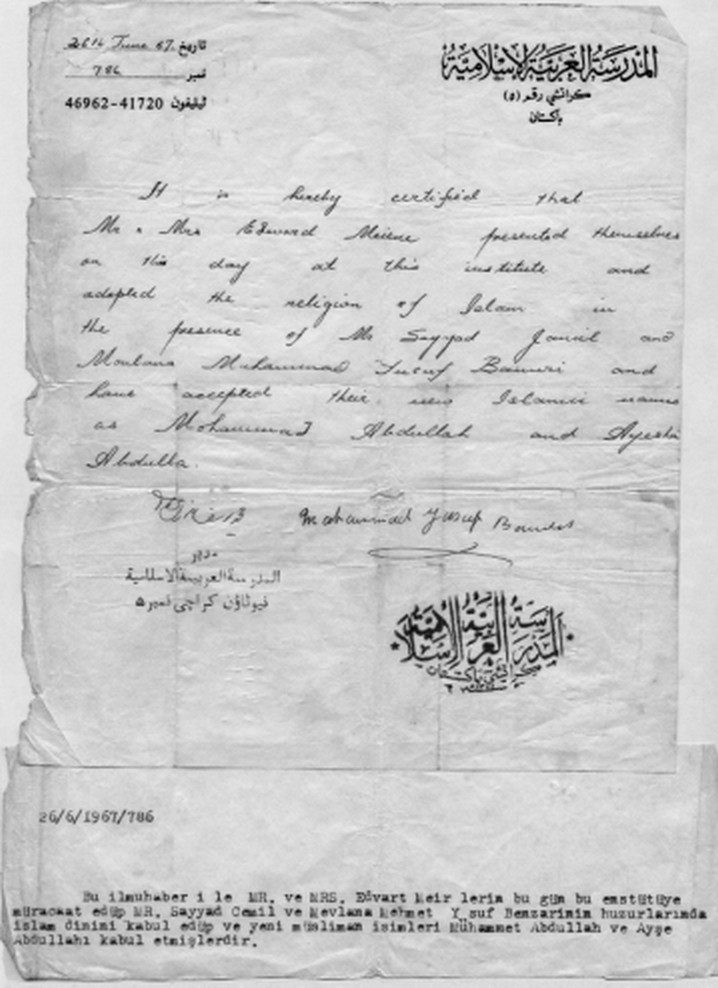 المدرسة العربية الاسلامية
كراتشي رقم (٥)
باكستان
تاريخ 26th June 67.
نمبر 786
ٹیلیفون 41720-46962
It is hereby certified that
Mr & Mrs Edward Meiene presented themselves
on this day at this institute and
adopted the religion of Islam in
the presence of Mr Sayyad Jamil and
Moulana Muhammad Yusuf Bannuri and
have accepted their new Islamic names
as Mohammad Abdullah and Ayesha
Abdulla.
Mohammad Yusuf
مدیر
المدرسة العربیة الاسلامیة
نیوٹاؤن کراچی نمبر ۵
المدرسة العربية الإسلامية
كراتشي باكستان
26/6/1967/786
Bu ilmuhaber i le MR. ve MRS. Edvart Meir lerin bu gün bu enstütüye
müracaat edüp MR. Sayyad Cemil ve Mevlana Mehmet Y suf Benzarinin huzurlarında
islam dinini kabul edüp ve yeni müsliman isimleri Mühammet Abdullah ve Ayşe
Abdullahı kabul etmişlerdir.